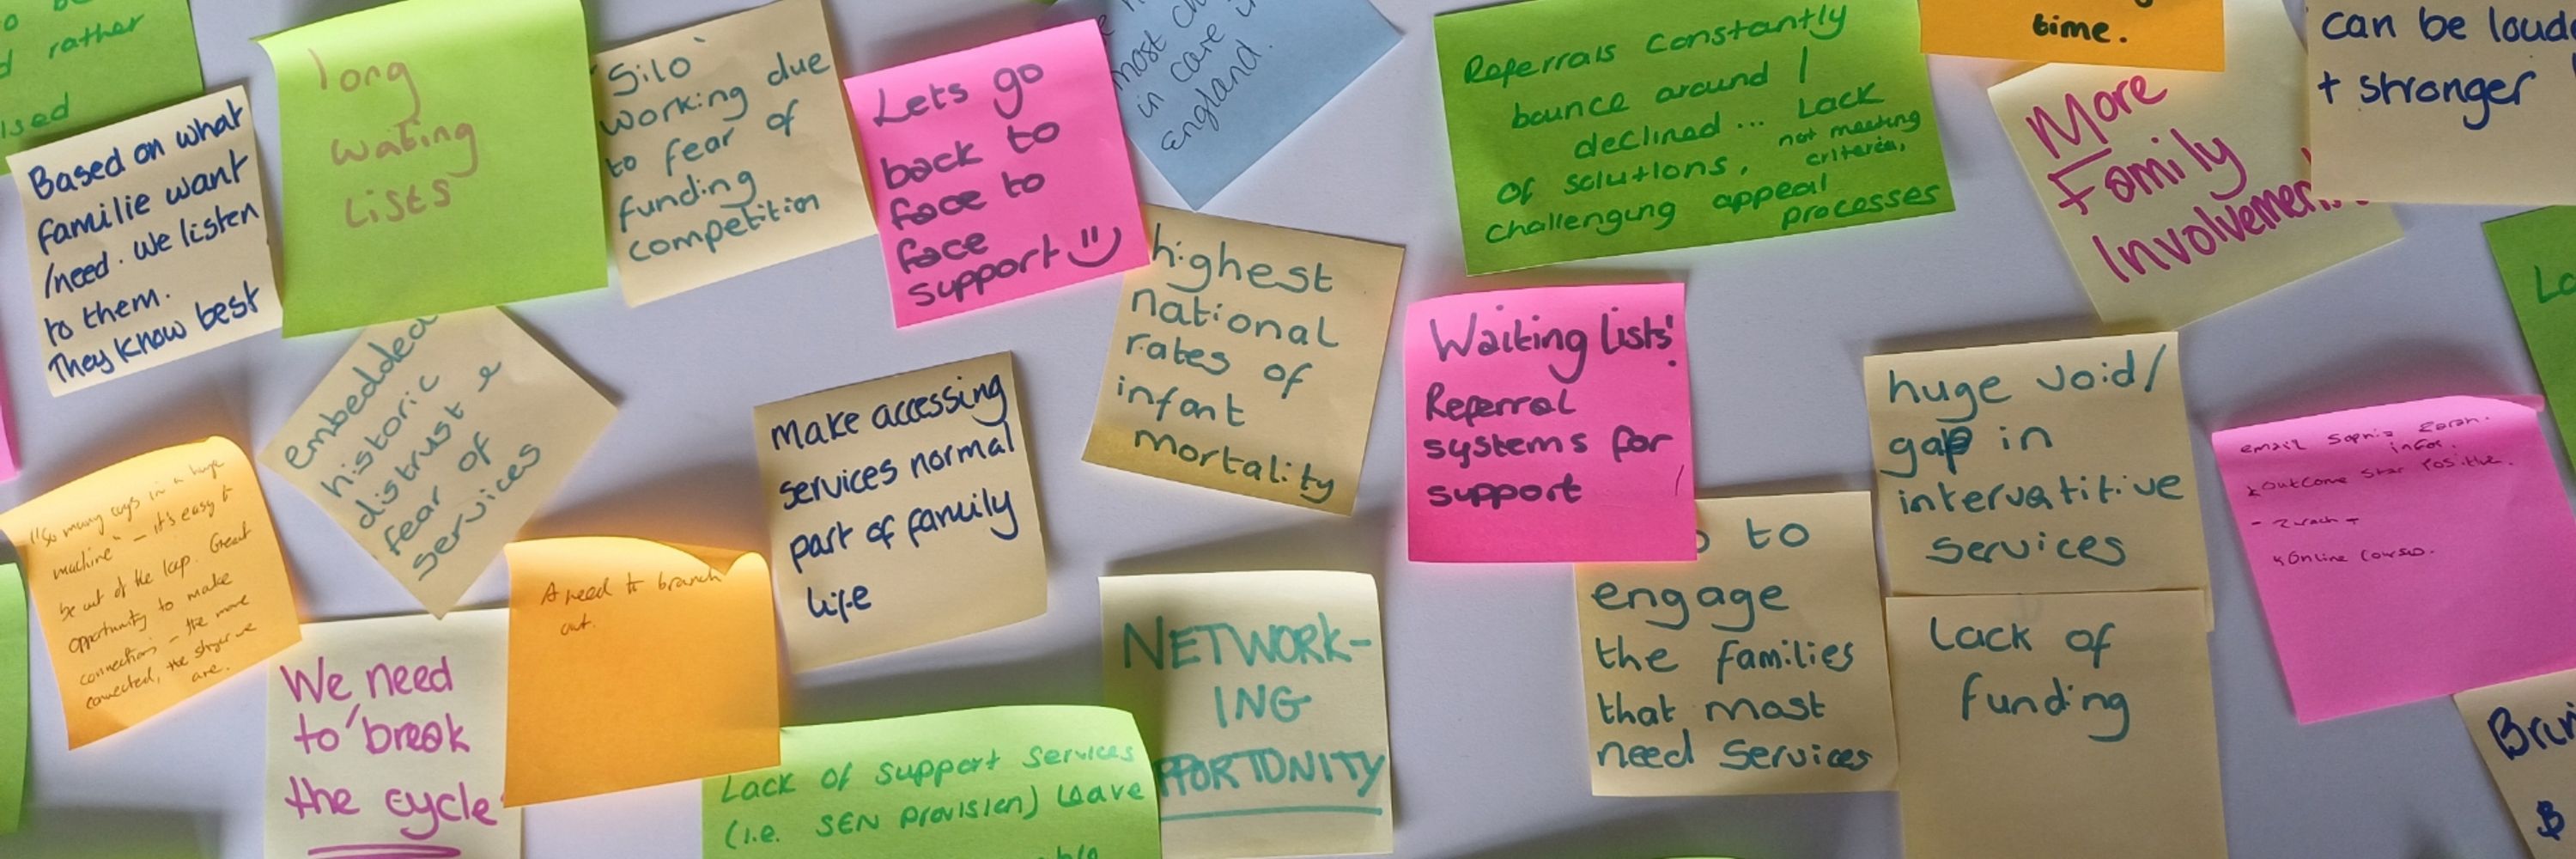 rather
Based on what
familie want
/need. we listen
to them.
They know best
long
wating
Lists
'Silo'
working due
to fear of
funding
competition
Lets go
back to
face to
face
support
most
in care
england.
Referrals constantly
bounce around /
declined... Lack
of solutions, not meeting
criteria,
challenging appeal
processes
time.
More
Family
Involvement
can be loude
+ stronger
embedded
historic
distrust e
fear of
services
"So many cogs in a huge
machine" - it's easy to
be out of the loop. Great
opportunity to make
connections - the more
connected, the stronger we
are.
We need
to 'break
the cycle
A need to branch
out.
Make accessing
services normal
part of family
life
highest
national
rates of
infant
mortality
Waiting lists!
Referral
systems for
support
NETWORK-
ING
PPORTUNITY
Lack of support services
(i.e. SEN provision) Leave
to
engage
the families
that most
need services
huge void/
gap in
intervatitive
services
Lack of
funding
email
infos.
Outcome Star Positive.
Online